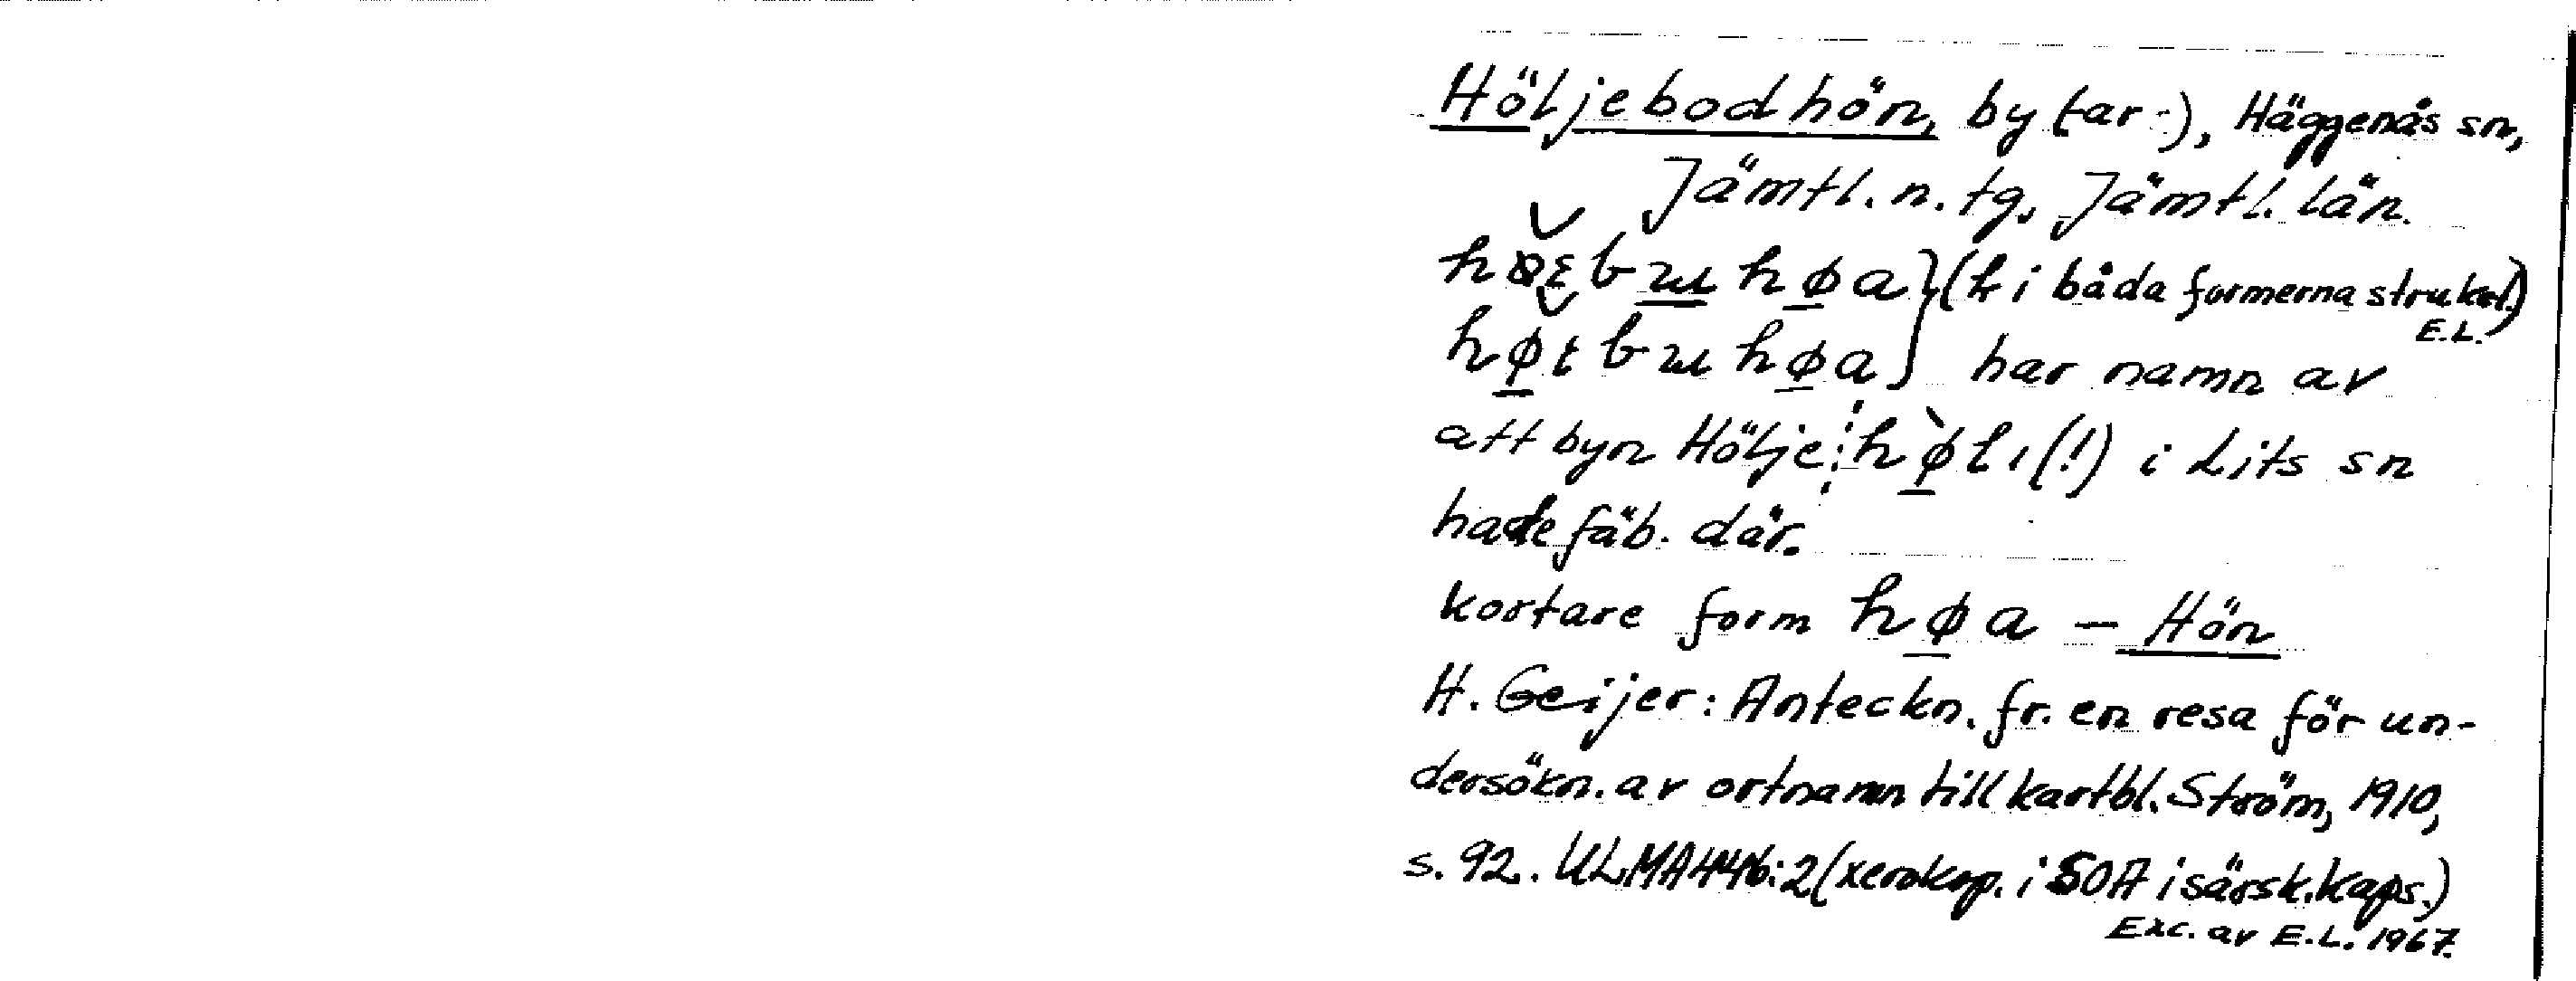 Höljebodhön, by (ar-), Häggenås sn,
Jämtl. n. tg, Jämtl. län.
(h i båda formerna strukel.)
E.L.
høtbɯhøa har namn av
att byn Hölje: hø̀tı (!) i Lits sn
hade fäb. där.
kortare form høa - Hön
H. Geijer: Anteckn. fr. en resa för un-
dersökn. av ortnamn till kartbl. Ström, 1910,
s. 92. ULMA 446:2 (xerokop. i SOA i särsk. kaps.)
Exc. av E.L. 1967.